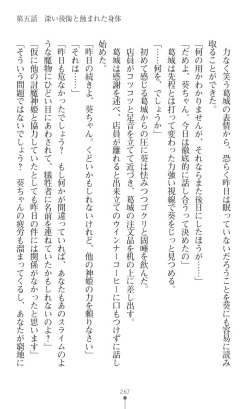 第五話　深い後悔と蝕まれた身体
力なく笑う葛城の表情から、恐らく昨日は眠っていないだろうことを葵にも容易に読み
取ることができた。
「何の用かわかりませんが、それは後日にしたほうが……」
「だめよ、葵ちゃん。今日は徹底的に話し合うって決めたの」
　葛城とは打って変わって真剣な力強い視線で葵をじっと見つめる。
「何を、でしょうか」
　初めて感じる葛城からの圧に葵は怯みつつゴクリと固唾を飲んだ。
　店員がコツコツと足音を立てて近づき、葛城の注文品を机の上に差し出す。
　葛城は感謝を述べ、店員が離れると出来立てのウィンナーコーヒーに口もつけずに話し
始めた。
「昨日の続きよ、葵ちゃん。くどいかもしれないけれど、他の神姫の力を頼りなさい」
「それは……」
「昨日も危なかったでしょう？　もし何かが間違っていれば、あなたもあのスライムのよ
うな魔物にひどい目にあわされて、犠牲者に名前を連ねていたかもしれないのよ？」
「仮に他の討魔神姫と協力していたとしても昨日の件には関係がなかったと思います」
「そういう問題ではないでしょう？　葵ちゃんの疲労も溜まってくるし、あなたが窮地に
267